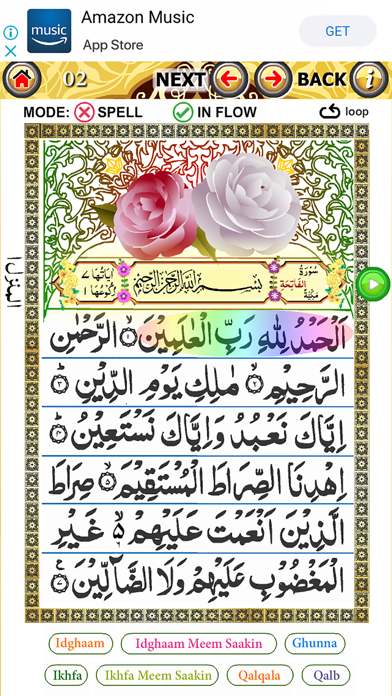 Amazon Music
music
App Store
GET
02
NEXT
BACK
i
MODE:
SPELL
IN FLOW
loop
المنزل ۱
اٰيَاتُهَا ۷
رُكُوْعُهَا ۱
بِسْمِ اللّٰهِ الرَّحْمٰنِ الرَّحِيْمِ
سُوْرَةُ
الْفَاتِحَةِ
مَكِّيَّةٌ
اَلْحَمْدُ لِلّٰهِ رَبِّ الْعٰلَمِيْنَ ۱ الرَّحْمٰنِ
الرَّحِيْمِ ۲ مٰلِكِ يَوْمِ الدِّيْنِ ۳
اِيَّاكَ نَعْبُدُ وَاِيَّاكَ نَسْتَعِيْنُ ۴
اِهْدِنَا الصِّرَاطَ الْمُسْتَقِيْمَ ۵ صِرَاطَ
الَّذِيْنَ اَنْعَمْتَ عَلَيْهِمْ ۵ غَيْرِ
الْمَغْضُوْبِ عَلَيْهِمْ وَلَا الضَّآلِّيْنَ
Idghaam
Idghaam Meem Saakin
Ghunna
Ikhfa
Ikhfa Meem Saakin
Qalqala
Qalb